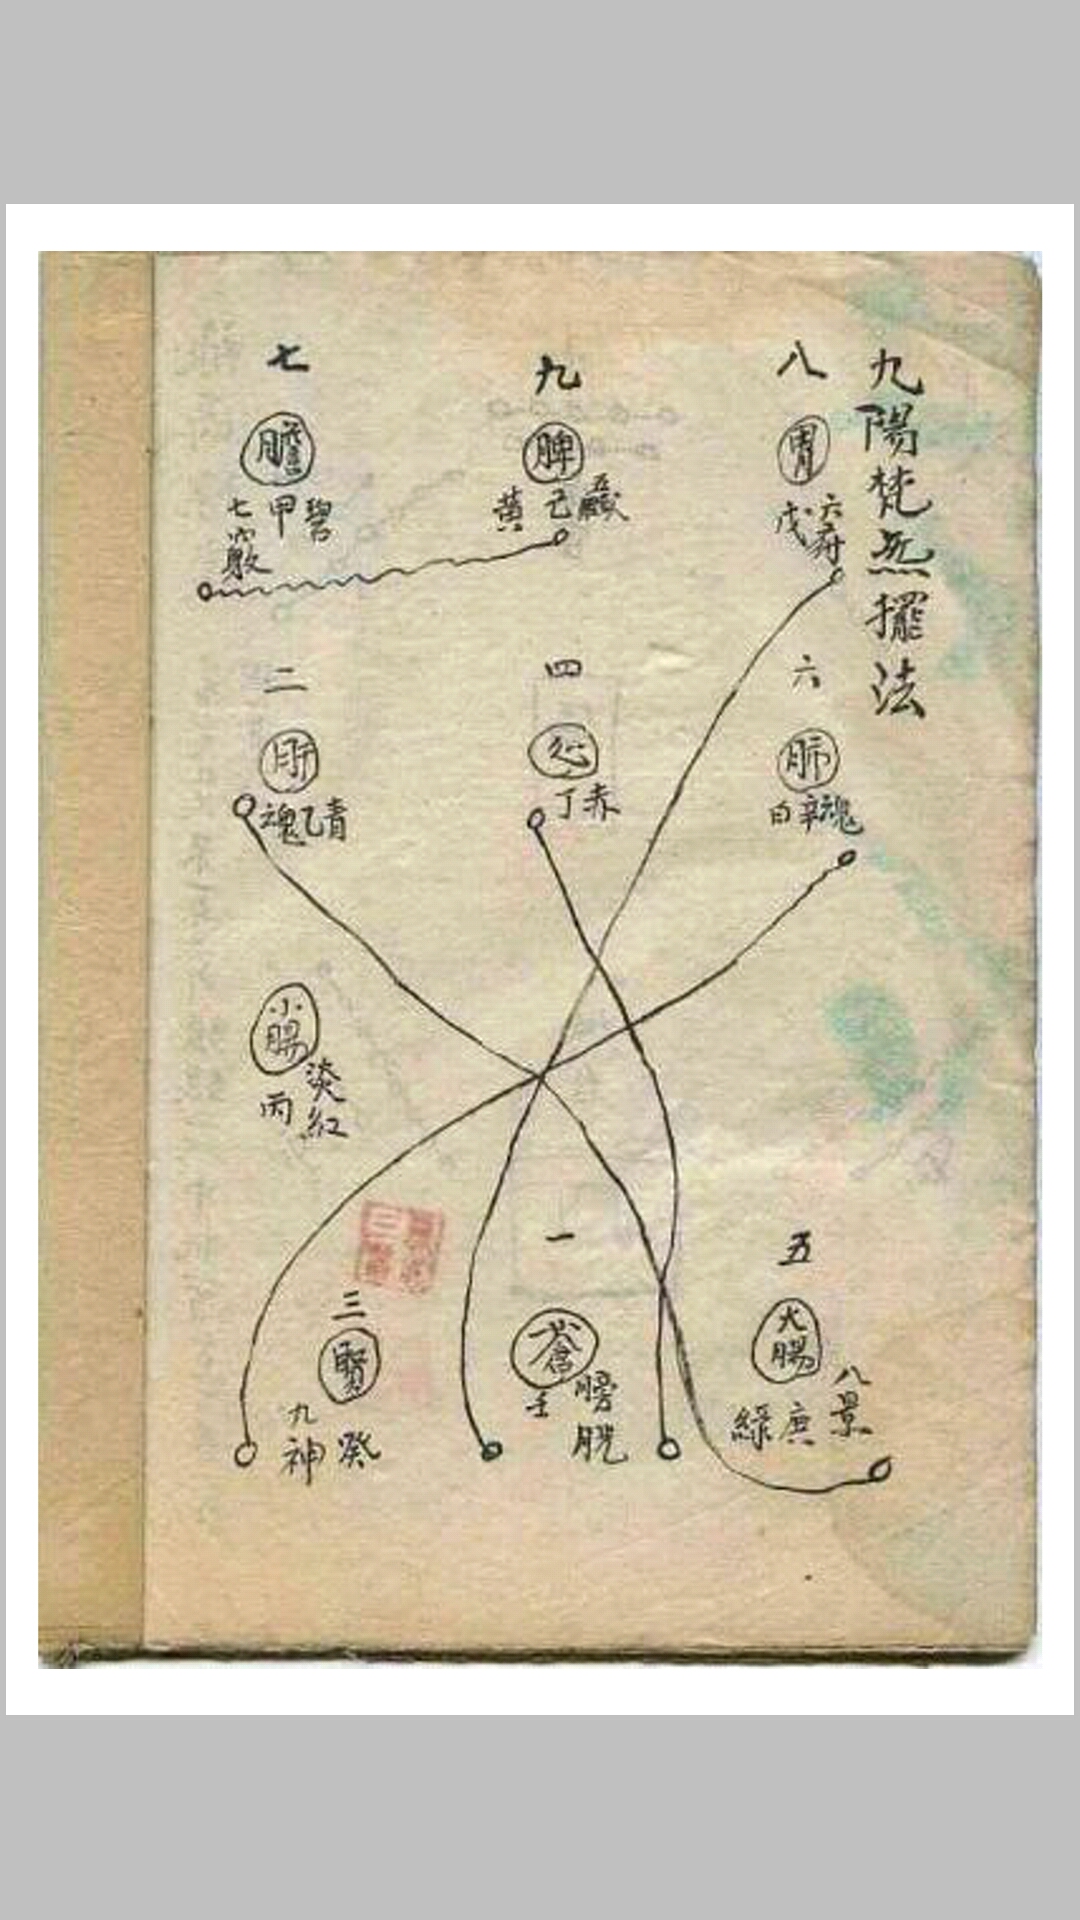 九陽梵炁擺法
八
胃
六府
戊
九
脾
五臟
己
黃
七
膽
碧
甲
七竅
六
肺
魂
辛
白
四
心
赤
丁
二
肝
青
乙
魂
小腸
淡紅
丙
五
大腸
八景
庚
綠
一
膀胱
壬
三
腎
癸
九神